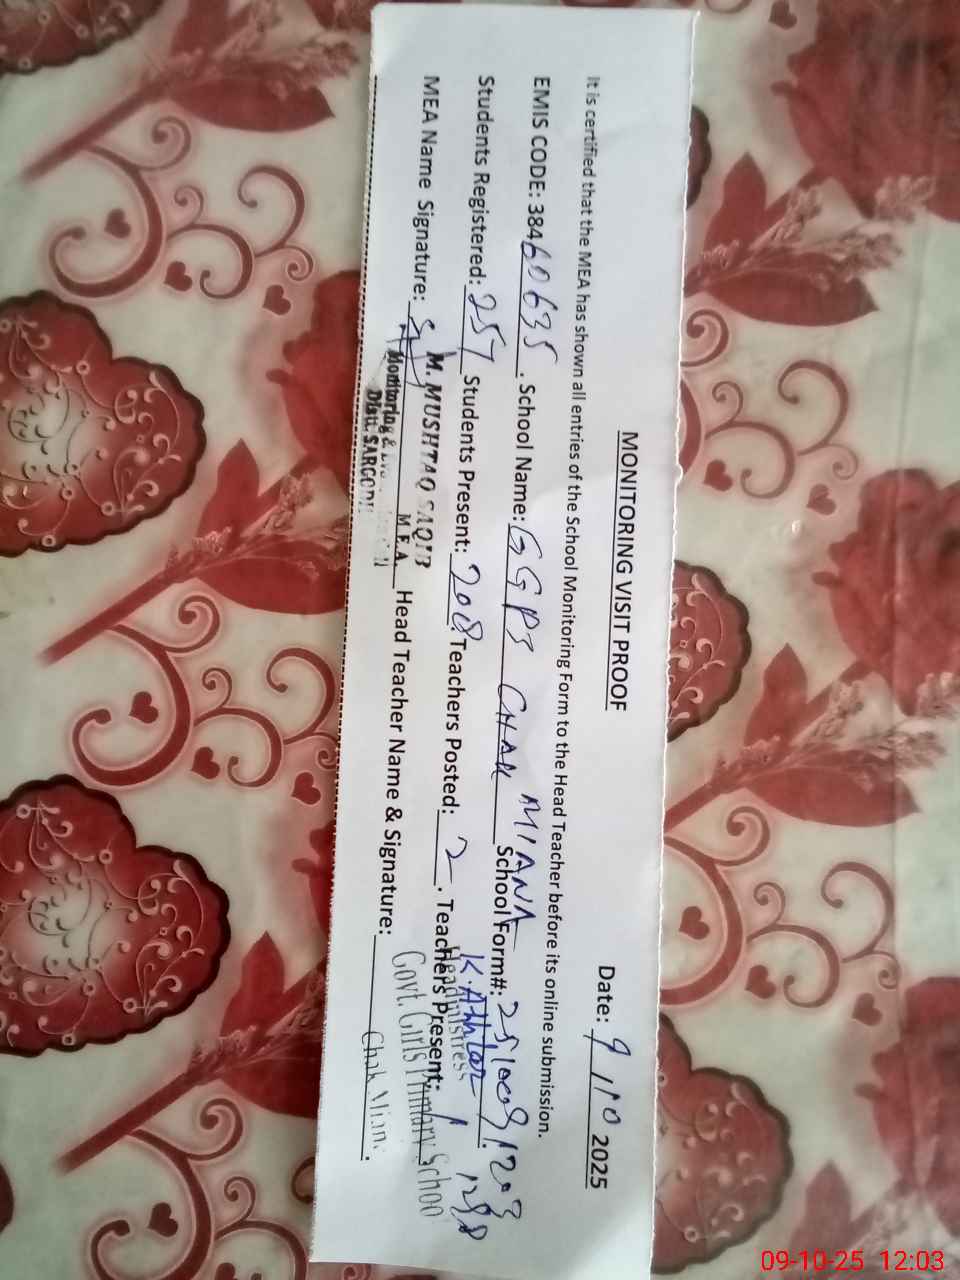 MONITORING VISIT PROOF
Date: 9/10 2025
It is certified that the MEA has shown all entries of the School Monitoring Form to the Head Teacher before its online submission.
EMIS CODE: 38460635. School Name: GGPS CHAK MIANA School Form#:
Students Registered: 257 Students Present: 208 Teachers Posted: 2. Teachers Present: 1
MEA Name Signature: Head Teacher Name & Signature:
M. MUSHTAQ SAQIB
M E A
Monitoring &
Distt. SARGODHA
Headmistress
Govt. Girls Primary School
Chak Miana
09-10-25 12:03